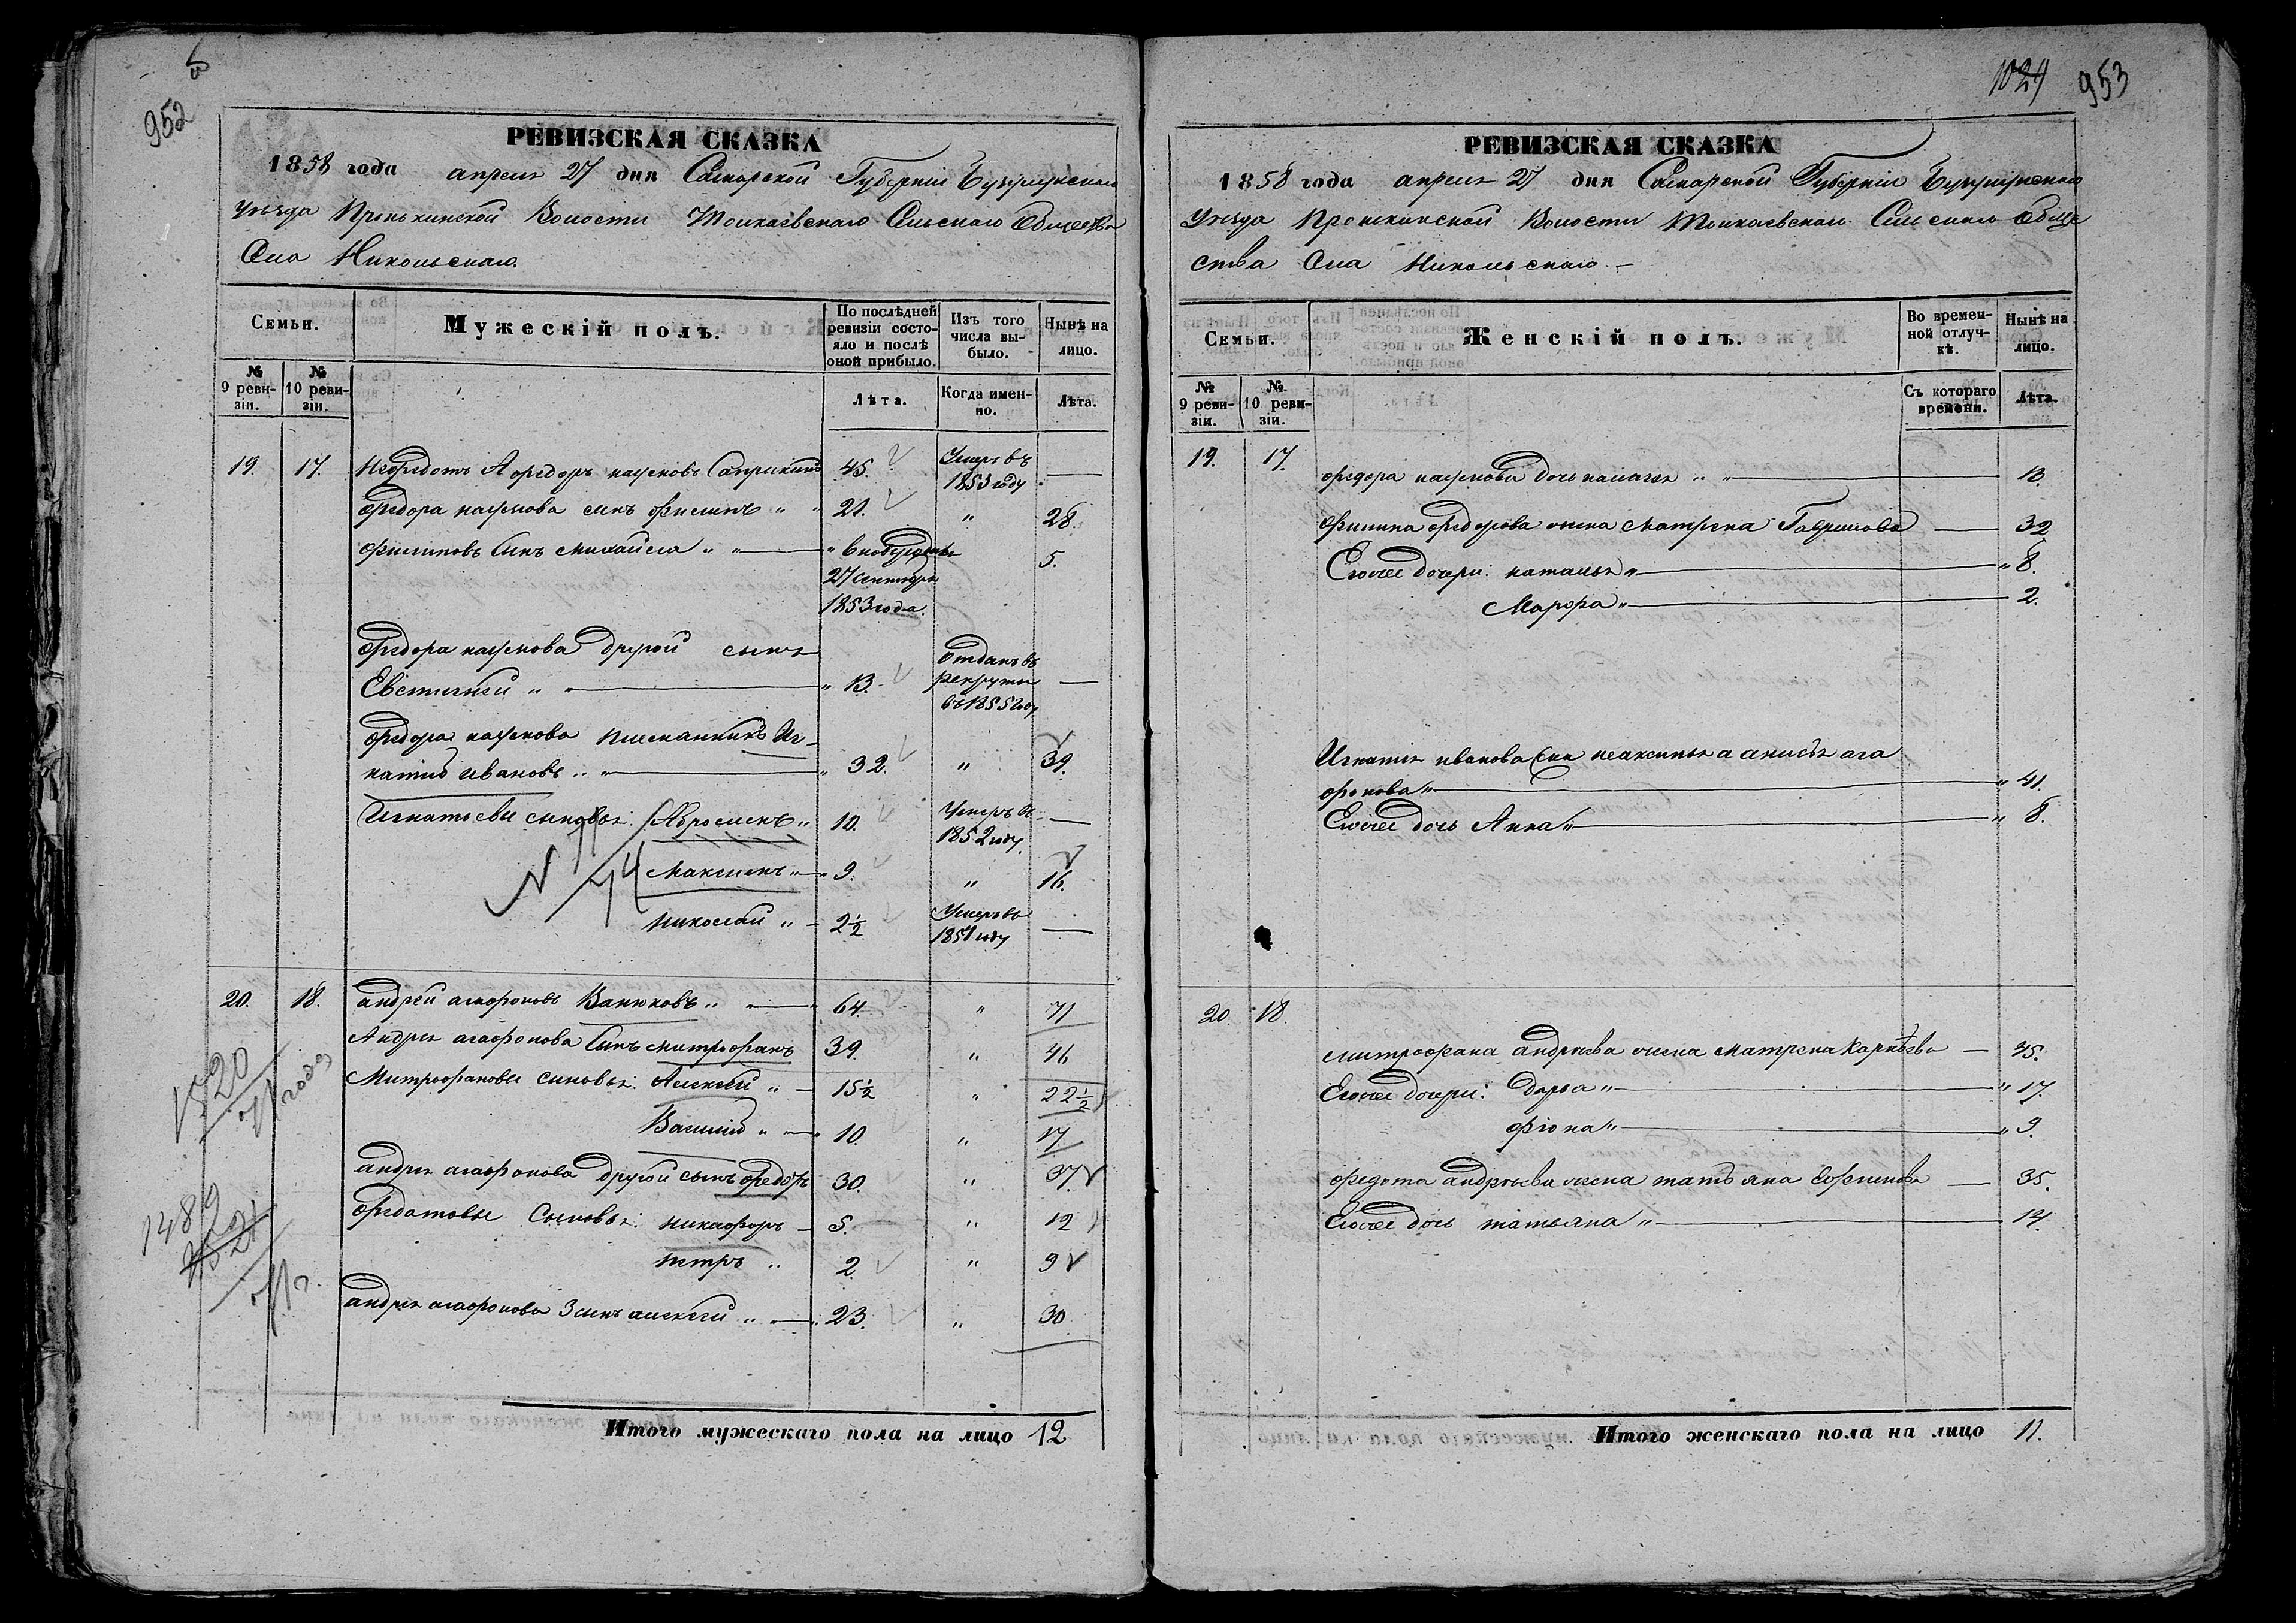 952
РЕВИЗСКАЯ СКАЗКА
1858 года апреля 27 дня Самарской Губернии Бузулукскаго
Уезда Пронькинской Волости Токаевскаго Сельскаго Общества
Села Никольскаго.
Семьи.
Мужескій полъ.
По послѣдней ревизіи состояло и послѣ оной прибыло.
Изъ того числа выбыло.
Нынѣ на лицо.
№ 9 ревизіи.
№ 10 ревизіи.
Лѣта.
Когда именно.
Лѣта.
19. 17. Наумовъ 45. Умеръ въ 1853 году —
Федора наумова сынъ филипъ " " 21. " 28.
филиповъ сынъ михайла " " — " вновьрожденъ 27 сентября 1853 года. 5.
Федора наумова другой сынъ
Евстигней " " — " 13. Отданъ въ рекруты въ 1855 году —
федора наумова племянникъ Иг-
натий ивановъ " " — " 32. " 39.
Игнатьевы сыновья: Абросимъ " 10. Умеръ въ 1852 году —
Максимъ " — " 9. " 16.
Николай " — 2½ Умеръ въ году —
№ 74
20. 18. андрей агафоновъ Ванюковъ " " — " 64. " 71
Андрея агафонова сынъ митрофанъ 39. " 46
Митрофановы сыновья: Алексей " — 15½ " 22½
Василий " — " 10. " 17
андрея агафонова другой сынъ федотъ 30. " 37
федотовы Сыновья: никифоръ — 5. " 12
петръ " 2. " 9
андрея агафонова 3 сынъ алексей " " — " 23. " 30
1489
Итого мужескаго пола на лицо 12
1029 953
РЕВИЗСКАЯ СКАЗКА
1858 года апреля 27 дня Самарской Губернии Бузулукскаго
Уезда Пронькинской Волости Токаевскаго Сельскаго Обще
ства Села Никольскаго —
Семьи.
Женскій полъ.
Во временной отлучкѣ.
Нынѣ на лицо.
№ 9 ревизіи.
№ 10 ревизіи.
Съ котораго времени.
Лѣта.
19. 17.
федора наумова дочь " " — 13.
филипа федорова жена матрена Гаврилова — 32
Егожее дочери: наталья " — " 8.
Марфа " — 2.
Игнатья иванова ага
фонова " — " 41.
Егожее дочь Анна " — " 8.
20 18.
митрофана андреева жена матрена — 45.
Егожее дочери: дарья " — " 17.
фіона " — " 9.
федота андреева жена татьяна ефимова — 35.
Егожее дочь татьяна " — 14.
Итого женскаго пола на лицо 11.